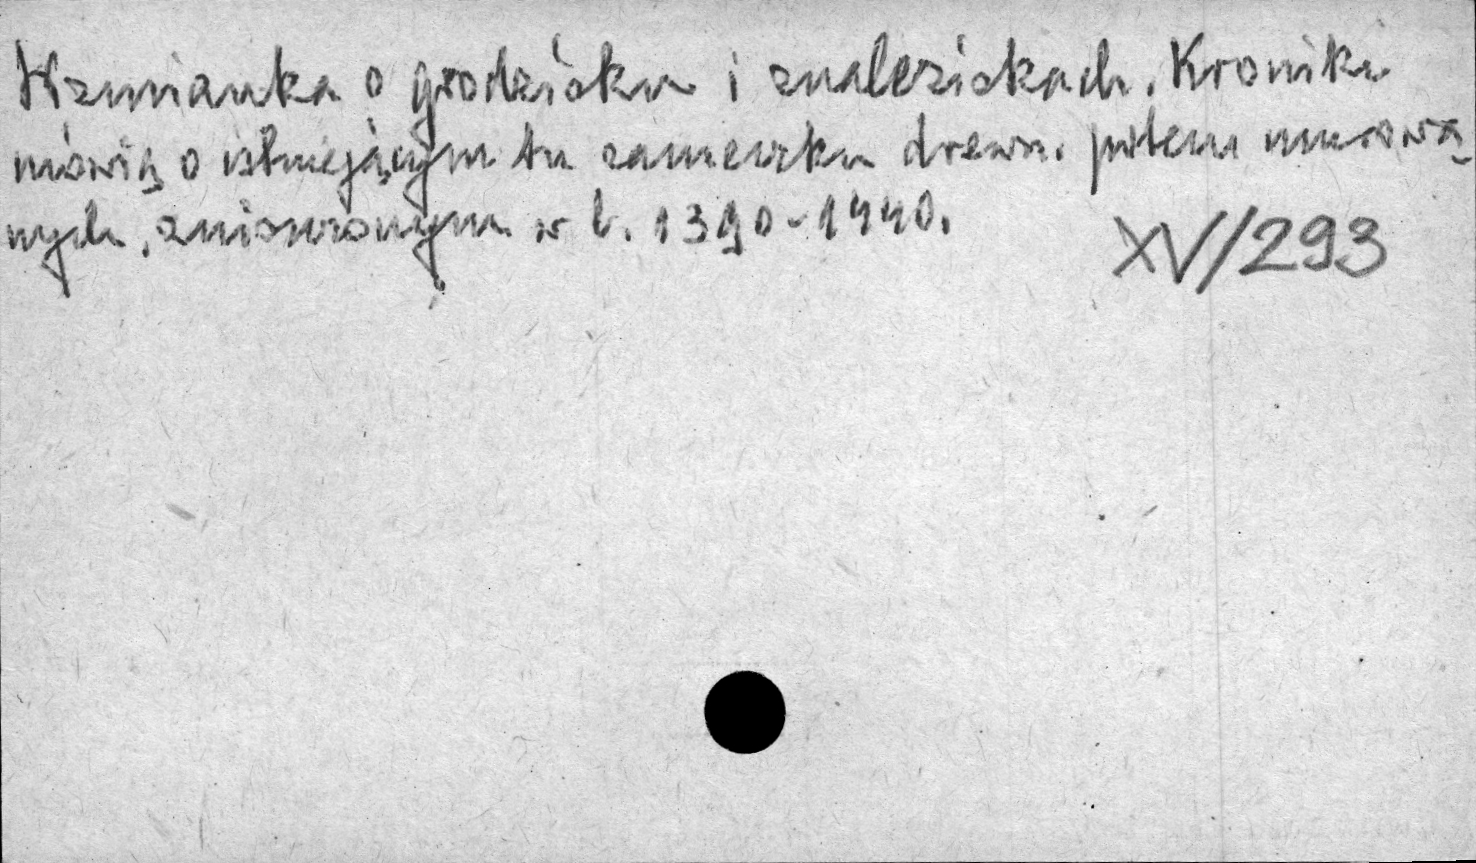 Wzmianka o grodzisku i znaleziskach. Kroniki
mówią o istniejącym tu zameczku drewn. potem murowa
nych, zniszczonym w l. 1390-1440.
XV/293